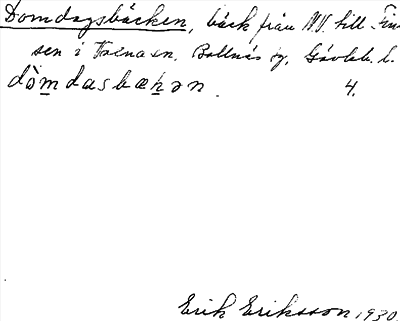 Domdagsbäcken, bäck från NV. till Fin
sen i Bollnäs sg, Gävleb. l.
dòm̲dasbæḵən. 4.
Erik Eriksson 1930.